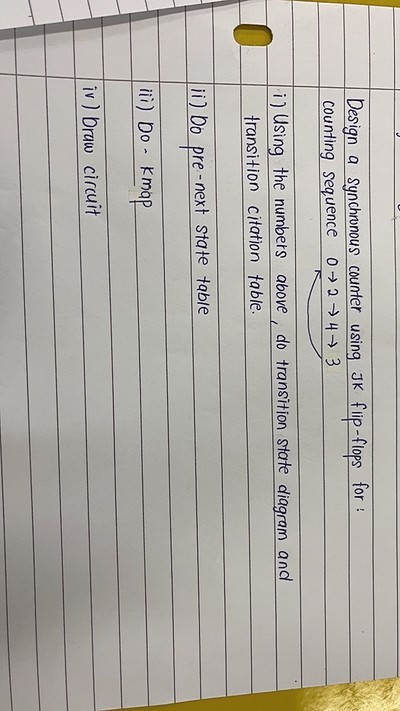 Design a synchronous counter using JK flip-flops for :
counting sequence 0 → 2 → 4 → 3
i) Using the numbers above, do transition state diagram and
transition citation table.
ii) Do pre-next state table
iii) Do - Kmap
iv) Draw circuit